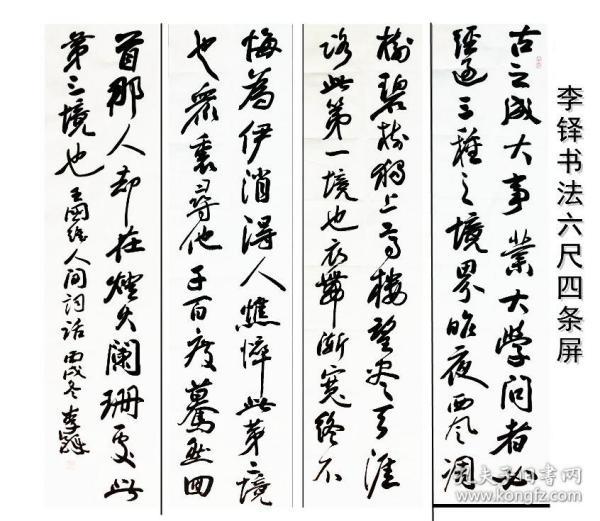 李铎书法六尺四条屏
古之成大事業大學问者必
经過三種之境界昨夜西风凋
樹碧樹獨上高樓望尽天涯
路此第一境也衣帶漸寬終不
悔為伊消得人憔悴此第二境
也衆裏尋他千百度驀然回
首那人却在燈火阑珊處此
第三境也 王国维人间词话 丙戌冬 李鐸
孔夫子旧书网
www.kongfz.com